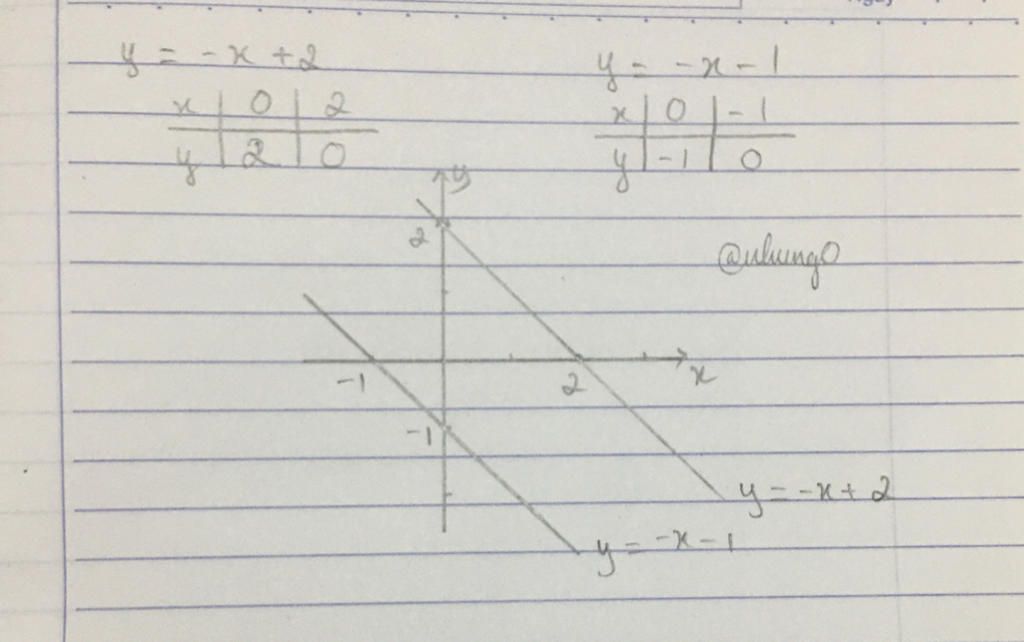 y = -x + 2
x | 0 | 2
y | 2 | 0
y = -x - 1
x | 0 | -1
y | -1 | 0
y
2
-1
2
x
-1
y = -x + 2
y = -x - 1